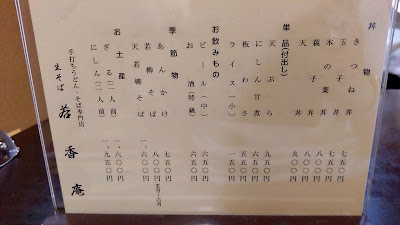 丼物
きつね丼 七五〇円
玉子丼 七五〇円
木の葉丼 八〇〇円
親子丼 八〇〇円
天丼 九〇〇円
単品(付出し)
天ぷら 九五〇円
にしん甘煮 六五〇円
板わさ
ライス(小) 一五〇円
お飲みもの
ビール(中) 六五〇円
お酒(特級) 六五〇円
季節物
あんかけ 七五〇円
若柳そば 八〇〇円
天若柳そば 一、六〇〇円
お土産
ざる(二人前) 一、六〇〇円
にしん(二人前) 一、九五〇円
手打ちうどん・そば専門店
生そば 若香庵